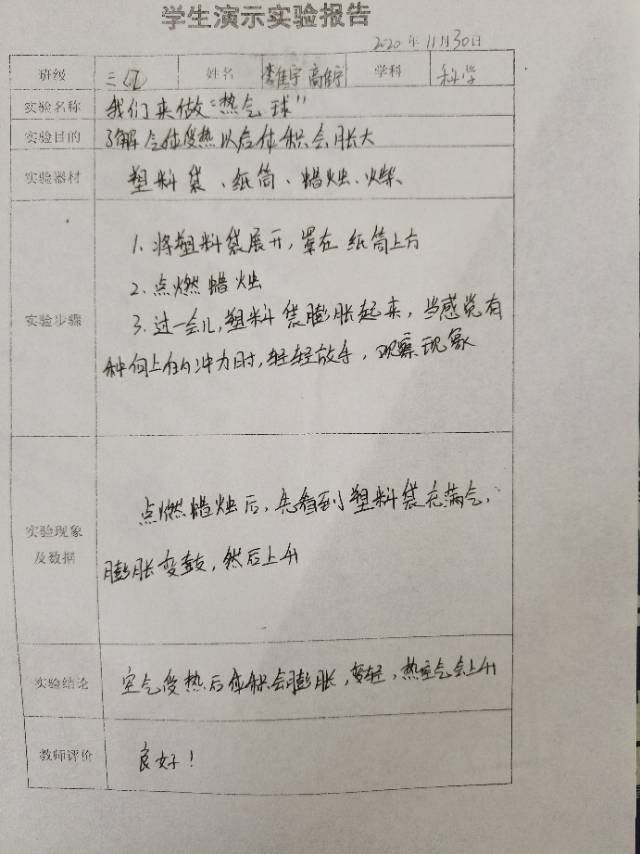 学生演示实验报告
2020年11月30日
班级 三 姓名 李佳宇 高佳宇 学科 科学
实验名称 我们来做“热气球”
实验目的 了解气体受热以后体积会胀大
实验器材 塑料袋、纸筒、蜡烛、火柴
实验步骤
1. 将塑料袋展开，罩在纸筒上方
2. 点燃蜡烛
3. 过一会儿，塑料袋膨胀起来，当感觉有
种向上的冲力时，轻轻放手，观察现象
实验现象
及数据
点燃蜡烛后，先看到塑料袋充满气，
膨胀变鼓，然后上升
实验结论 空气受热后体积会膨胀，变轻，热空气会上升
教师评价 良好！